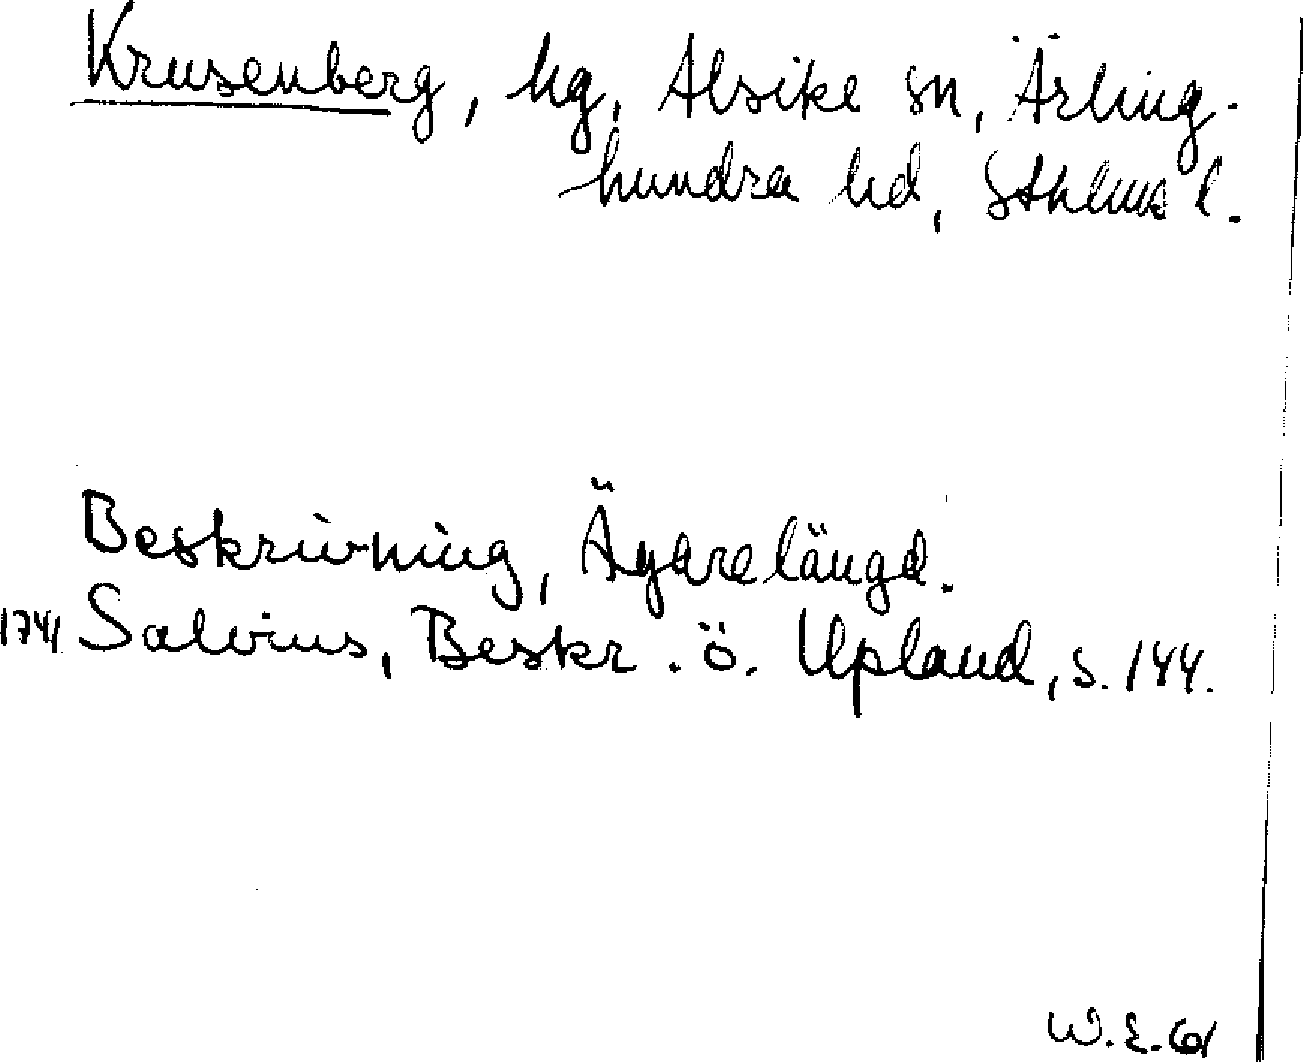 Krusenberg, hg, Alsike sn, Ärling-
hundra hd, Sthlms l.
Beskrivning, Ägarelängd.
1741 Salvius, Beskr. ö. Upland, s. 144.
W.E. 61